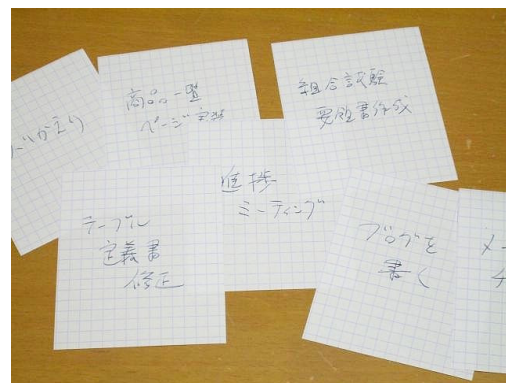 商品一覧
ページ実装
組合試験
要領書作成
進捗
ミーティング
テーブル
定義書
修正
ブログを
書く
メー
チ